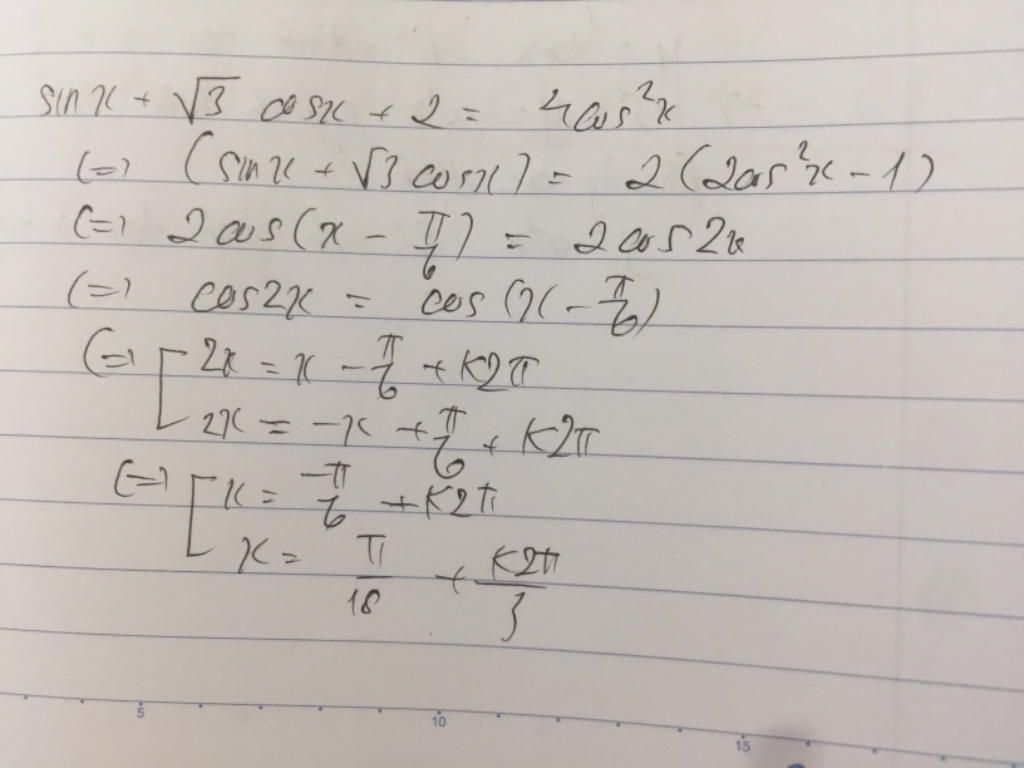 sinx + √3 cosx + 2 = 4cos²x
(=) (sinx + √3 cosx) = 2(2cos²x - 1)
(=) 2cos(x - π/6) = 2cos2x
(=) cos2x = cos(x - π/6)
(=) [ 2x = x - π/6 + k2π
2x = -x + π/6 + k2π
(=) [ x = -π/6 + k2π
x = π/18 + k2π/3
5 10 15